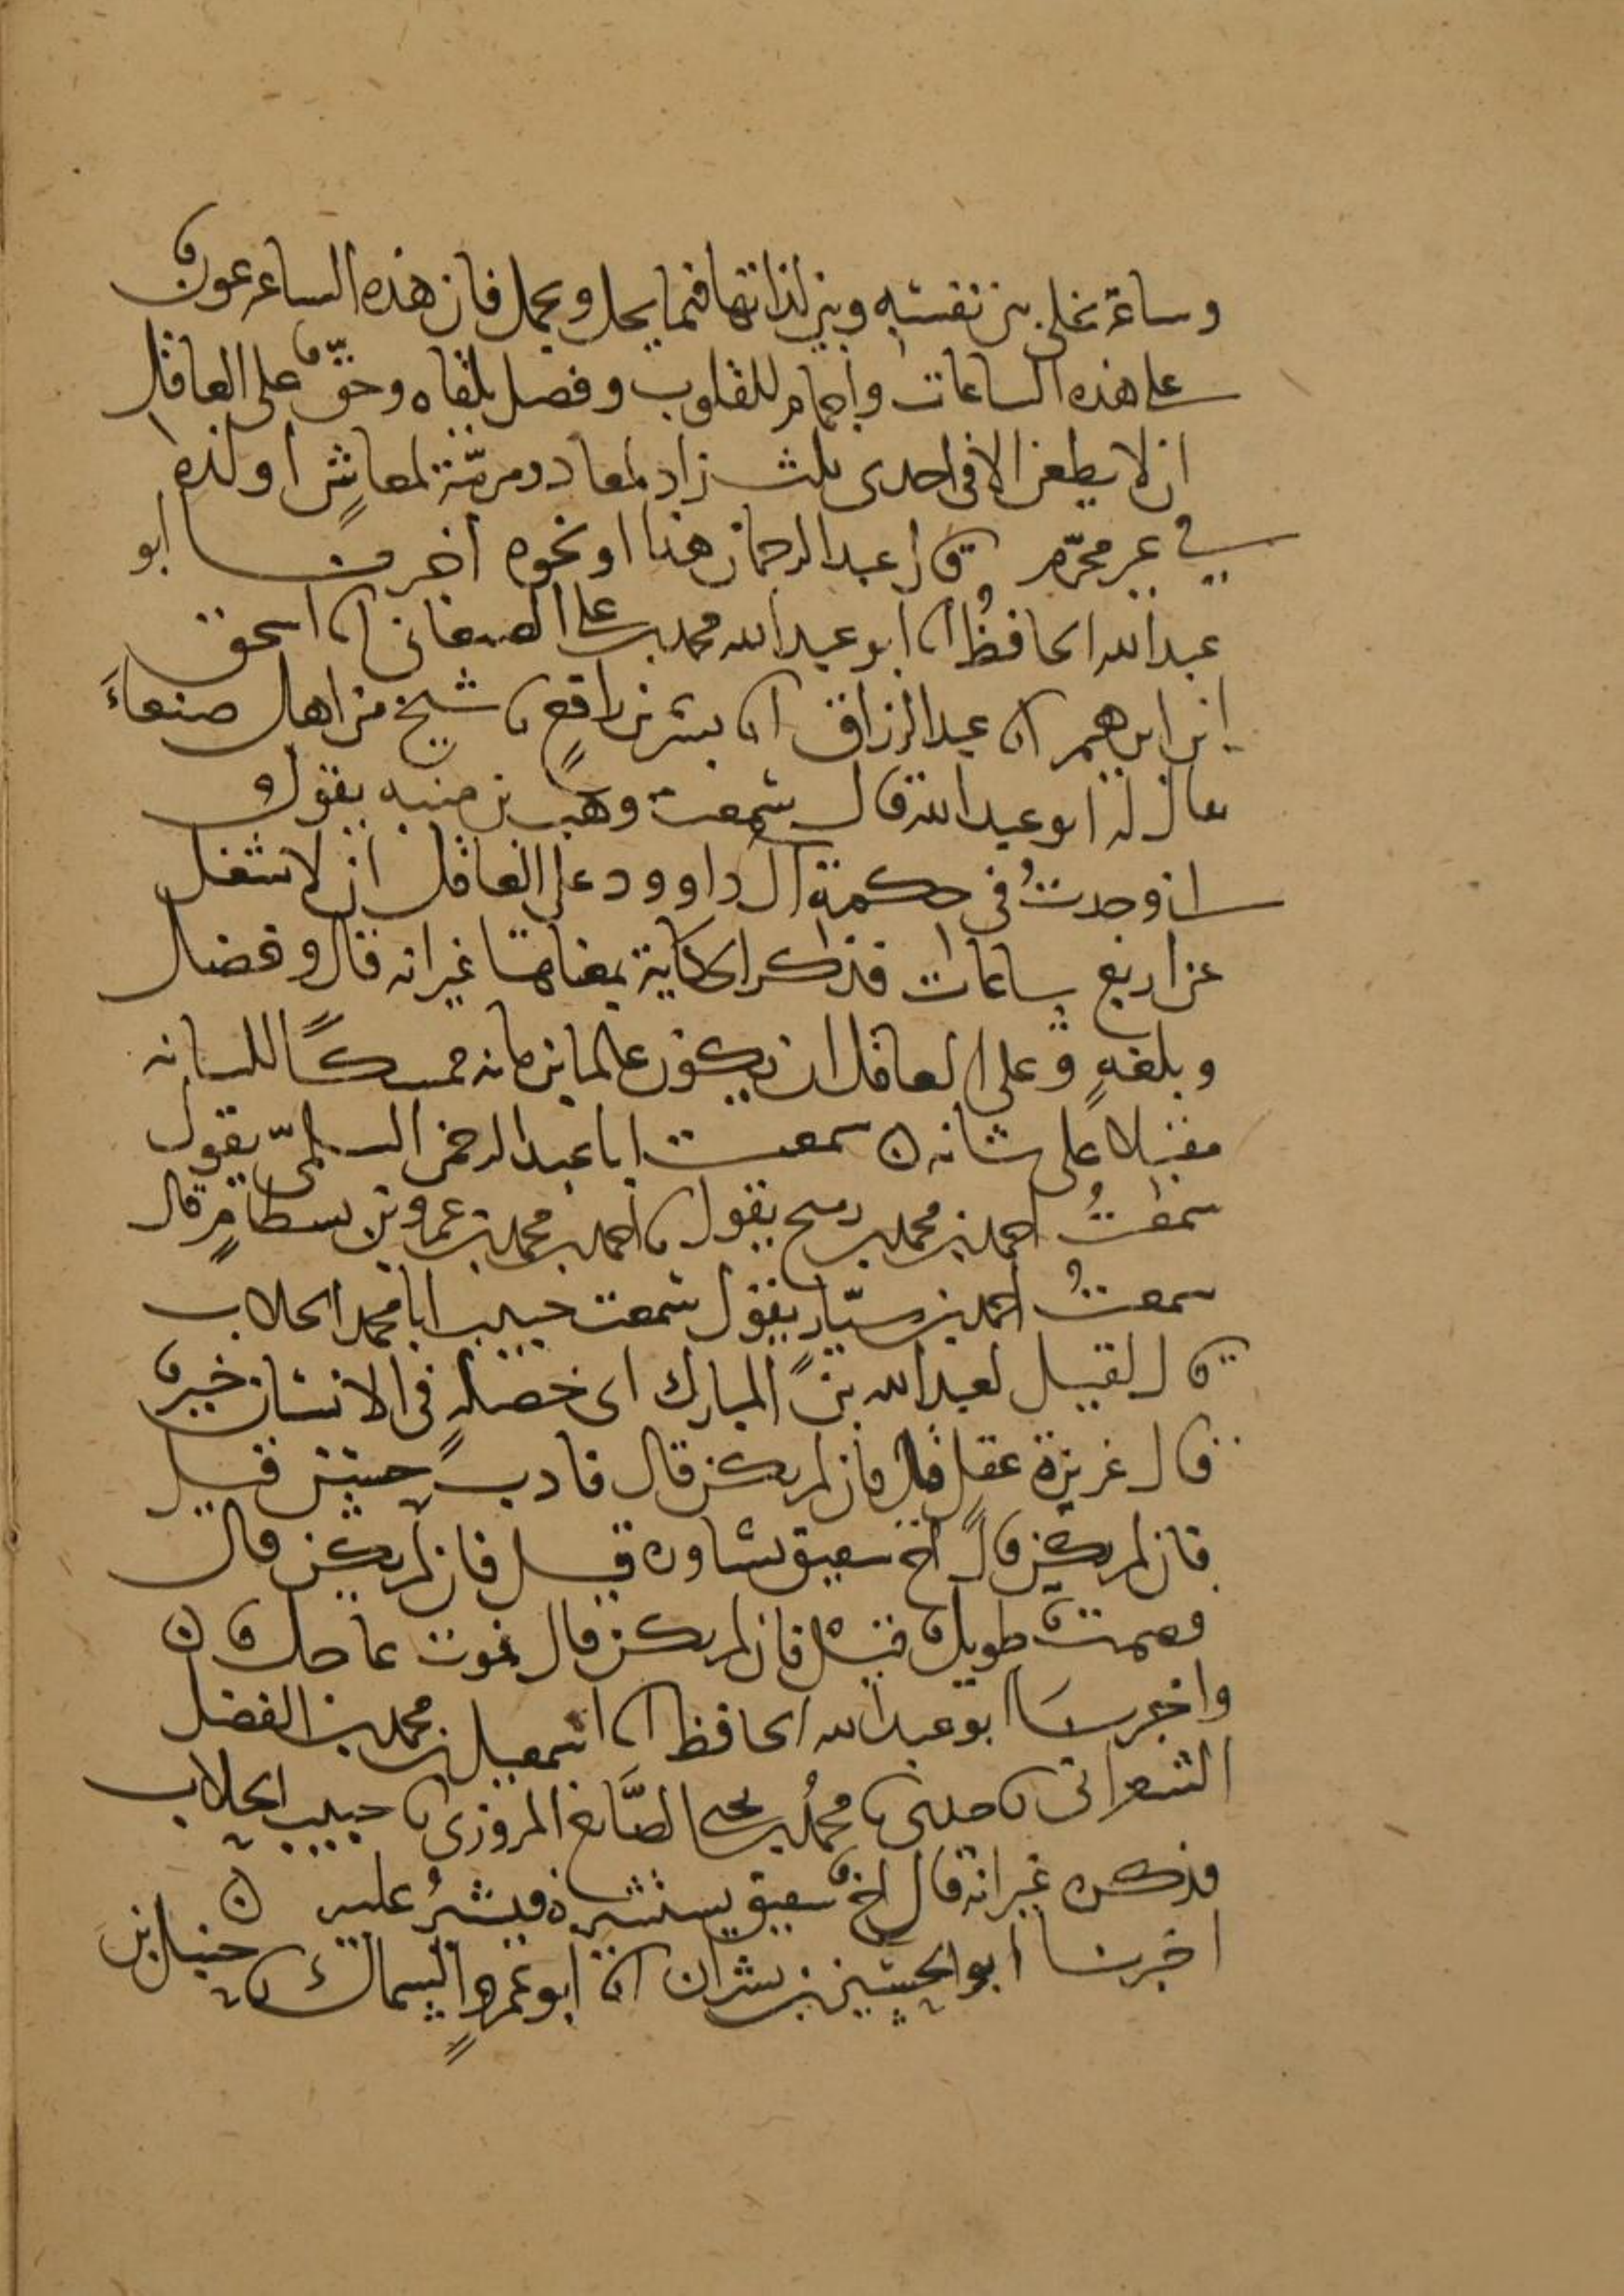 وساعة يخلي بين نفسه وبين لذاتها فيما يحل ويجمل فان هذه الساعة عون
على هذه الساعات واجمام للقلوب وفضل بلغاه وحقّ على العاقل
ان لا يظعن الا في احدى ثلث زاد لمعاد ومرمّة لمعاشٍ او لذة
في غير محرّم قال عبد الرحمان هذا او نحوه اخبرنا ابو
عبد الله الحافظُ انا ابو عبد الله محمد بن علي الصنعاني انا اسحق
ابن ابرهيم انا عبد الرزاق انا بشر بن رافعٍ نا شيخ من اهل صنعاءَ
يقال له ابو عبد الله قال سمعت وهب بن منبه يقول
اني وجدتُ في حكمة آل داوود على العاقل ان لا يشغل
عن اربع ساعات فذكر الحكاية بمعناها غير انه قال وفضل
وبلغهٍ وعلى العاقل ان يكون عالما بزمانه ممسكًا للسانه
مقبلا على شانه ه سمعت ابا عبد الرحمن السلميّ يقول
سمعتُ احمد بن محمد بن رميح يقول نا احمد بن محمد بن عمرو بن بسطامٍ قال
سمعتُ احمد بن سيّار يقول سمعت حبيب ابا محمد الجلاب
قال قيل لعبد الله بن المبارك اي خصلةٍ في الانسان خير
قال غريزة عقل قال فان لم يكن قال فادب حسن قيل
فان لم يكن قال اخ شقيق يشاوره قيل فان لم يكن قال
فصمت طويل قيل فان لم يكن قال فموت عاجل ه
واخبرنا ابو عبد الله الحافظ انا اسمعيل بن محمد بن الفضل
الشعراني نا جدي نا محمدُ بن يحيى الصَّايغ المروزي نا حبيب الجلاب
فذكره غير انه قال اخ شقيق يستشيره فيشيرُ عليه ه
اخبرنا ابو الحسين بن بشران انا ابو عمروٍ السماك نا حنبل بن